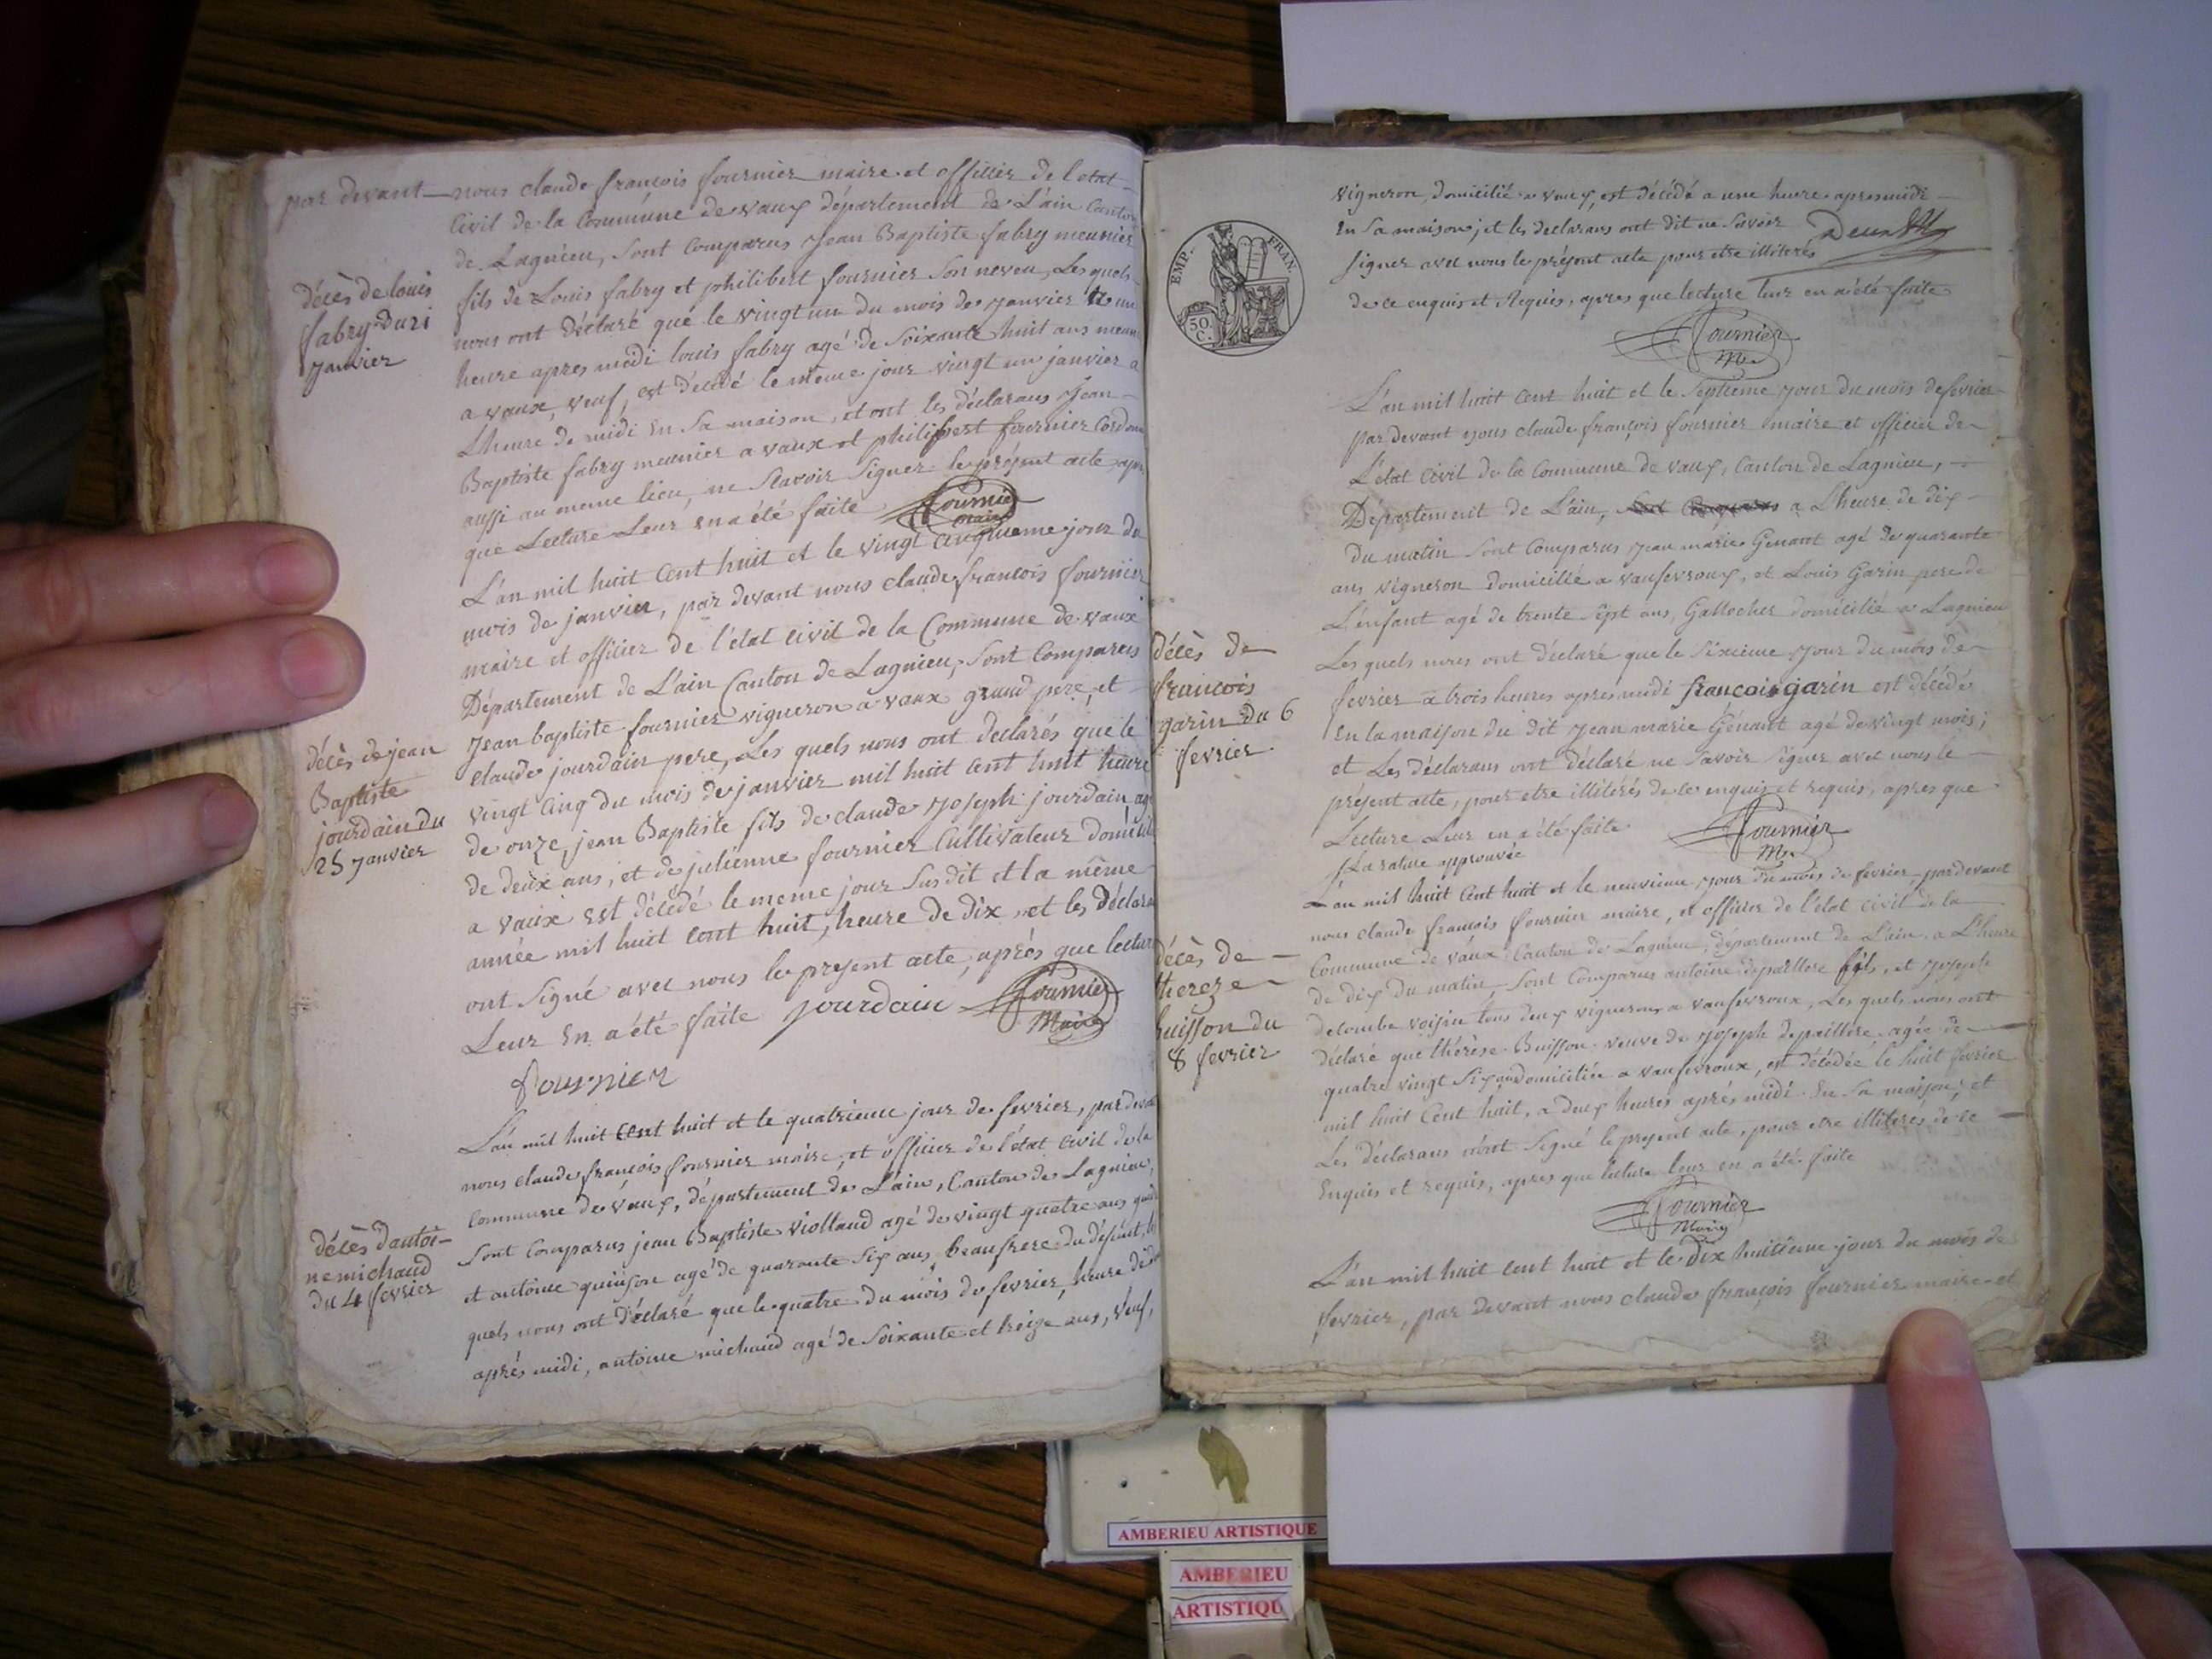 par devant nous claude françois fournier maire et officier de l'etat
Civil de la Commune de vaux département de L'ain Canton
de Lagnieu, sont Comparus Jean Baptiste fabry meunier
décès de louis
fabry du 21
janvier
fils de Louis fabry et philibert fournier son neveu, Les quels
nous ont déclaré que le vingt un du mois de janvier a une
heure apres midi louis fabry agé de soixante huit ans meunier
a vaux, veuf, est décédé le même jour vingt un janvier a
L'heure de midi En sa maison, et ont les déclarans Jean
Baptiste fabry meunier a vaux et philibert fournier Cordon
aussi au meme lieu, ne scavoir signer le présent acte apr
que Lecture Leur en a été faite
fournier
maire
L'an mil huit Cent huit et le vingt cinquieme jour du
mois de janvier, par devant nous claude francois fournier
maire et officier de l'etat civil de la Commune de vaux
Département de L'ain Canton de Lagnieu, sont Comparus
décès de jean
Baptiste
jourdain du
25 janvier
Jean baptiste fournier vigneron a vaux grand pere, et
claude jourdain pere, Les quels nous ont declarés que le
vingt cinq du mois de janvier mil huit cent huit heure
de onze, jean Baptiste fils de claude joseph jourdain, ag
de deux ans, et de julienne fournier Cultivateur domicilié
a vaux est décédé le meme jour susdit et la même
année mil huit cent huit, heure de dix, et les déclara
ont signé avec nous le present acte, après que lecture
Leur En a été faite jourdain
fournier
Maire
fournier
L'an mil huit cent huit et le quatrieme jour de fevrier, par devant
nous claude françois fournier maire, et officier de l'état civil de la
Commune de vaux, département de L'ain, Canton de Lagnieu,
décès d'antoi-
ne michaud
du 4 fevrier
sont Comparus jean Baptiste Viollaud agé de vingt quatre ans
et antoine quinson agé de quarante six ans, beaufrere du défunt, les
quels nous ont déclaré que le quatre du mois de fevrier, heure de
aprés midi, antoine michaud agé de soixante et treize ans, veuf,
EMP. FRAN.
50.
C.
vigneron, domicilié a vaux, est décédé a une heure apresmidi
En sa maison; et les declarans ont dit ne savoir
signer avec nous le présent acte pour etre illiterés
de ce enquis et Requis, apres que lecture leur en a été faite
fournier
Mre
L'an mil huit cent huit et le septieme jour du mois de fevrier
par devant nous claude françois fournier maire et officier de
L'etat Civil de la Commune de vaux, Canton de Lagnieu,
Département de L'ain, a L'heure de dix
du matin sont Comparus jean marie Genant agé de quarante
ans vigneron domicilié a vaufevroux, et Louis Garin pere de
L'enfant agé de trente sept ans, Gallocher domicilié a Lagnieu
décès de
francois
garin du 6
fevrier
Les quels nous ont déclaré que le sixieme jour du mois de
fevrier a trois heures apres midi francois garin est décédé
En la maison du dit jean marie Génant agé de vingt mois;
et Les déclarans ont déclaré ne savoir signer avec nous le
présent acte, pour etre illitérés de ce enquis et requis, apres que
Lecture Leur en a été faite
fournier
Mre
La rature approuvée
L'an mil huit Cent huit et le neuvieme jour du mois de fevrier par devant
nous claude françois fournier maire, et officier de l'état civil de la
décès de
thereze
buisson du
8 fevrier
Commune de vaux Canton de Lagnieu, département de L'ain, a L'heure
de dix du matin sont Comparus antoine depaillere fils, et joseph
delombe voisin tous deux vignerons a vaufevroux, Les quels nous ont
déclaré que thérèse Buisson veuve de joseph depaillere agée de
quatre vingt six ans domiciliée a vaufevroux, est décédée le huit fevrier
mil huit Cent huit, a deux heures aprés midi En sa maison, et
Les déclarans n'ont signé le present acte, pour etre illiteres de ce
Enquis et requis, apres que lecture leur en a été faite
fournier
Maire
L'an mil huit cent huit et le Dix huitieme jour du mois de
fevrier, par devant nous claude françois fournier maire et
AMBERIEU ARTISTIQUE
AMBERIEU
ARTISTIQU